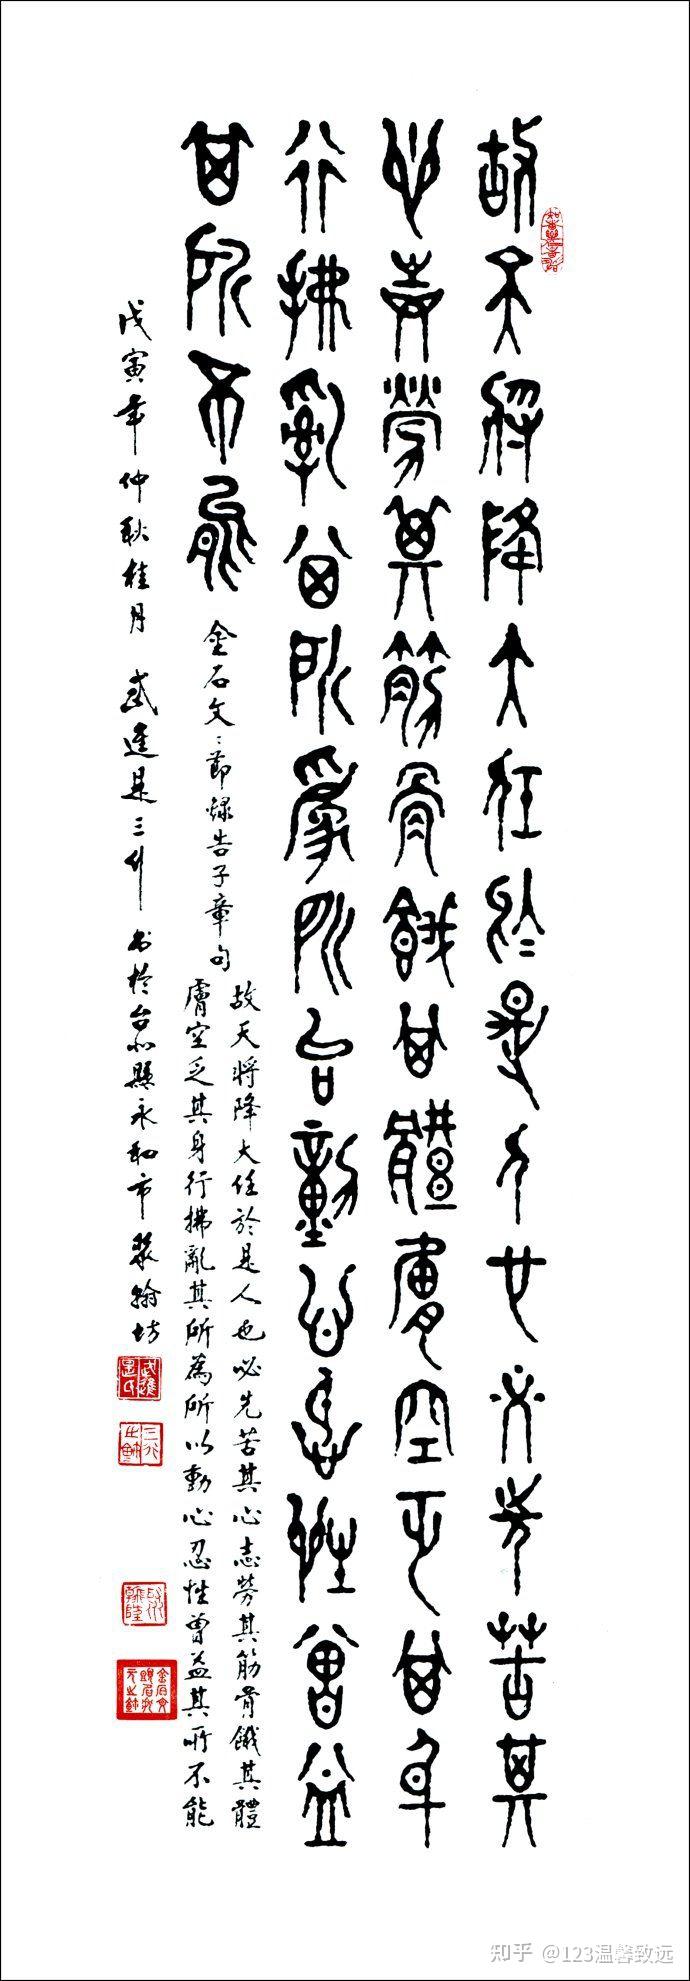 故天將降大任於是人也必先苦其
心志勞其筋骨餓其體膚空乏其身
行拂亂其所為所以動心忍性曾益
其所不能
金石文:節錄告子章句
故天將降大任於是人也必先苦其心志勞其筋骨餓其體
膚空乏其身行拂亂其所為所以動心忍性曾益其所不能
戊寅年仲秋桂月 武進是三 书於台北縣永和市翰坊
武進是氏
知乎 @123温馨致远